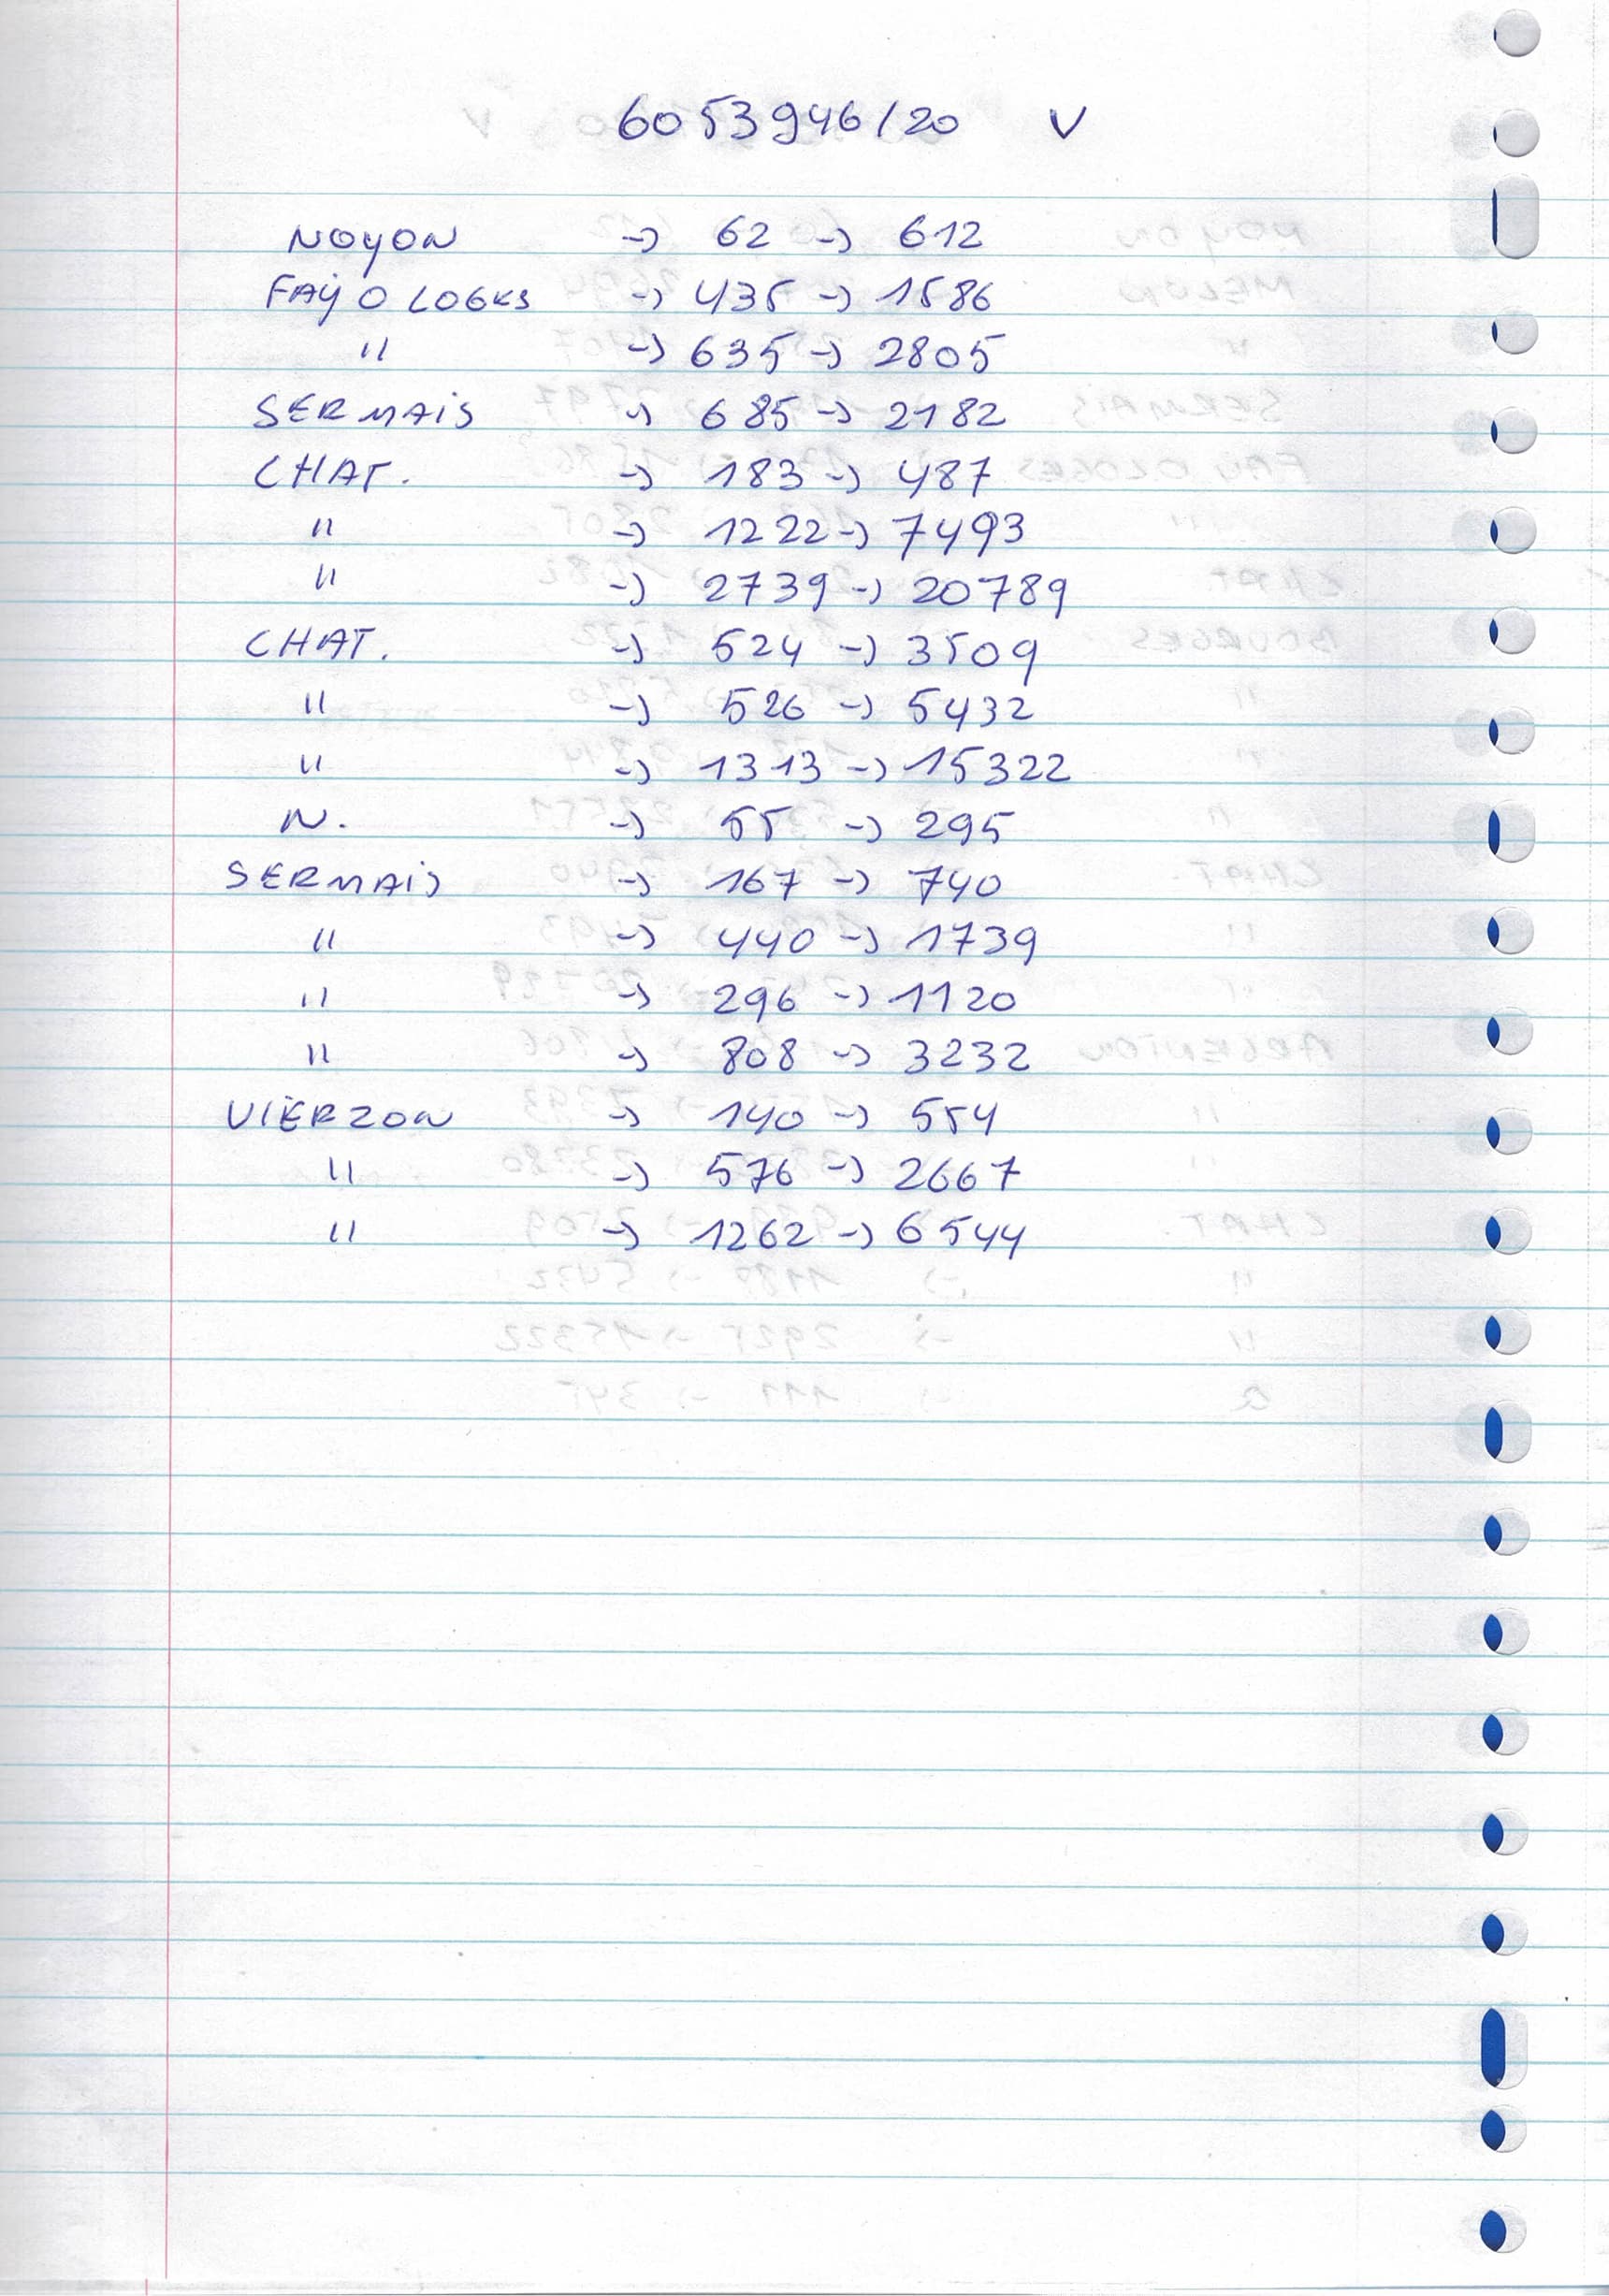 6053946/20 V
NOYON -> 62 -> 612
FAY O LOGES -> 435 -> 1586
" -> 635 -> 2805
SERMAIS -> 685 -> 2182
CHAT. -> 183 -> 487
" -> 1222 -> 7493
" -> 2739 -> 20789
CHAT. -> 524 -> 3509
" -> 526 -> 5432
" -> 1313 -> 15322
N. -> 55 -> 295
SERMAIS -> 167 -> 740
" -> 440 -> 1739
" -> 296 -> 1120
" -> 808 -> 3232
VIERZON -> 140 -> 554
" -> 576 -> 2667
" -> 1262 -> 6544